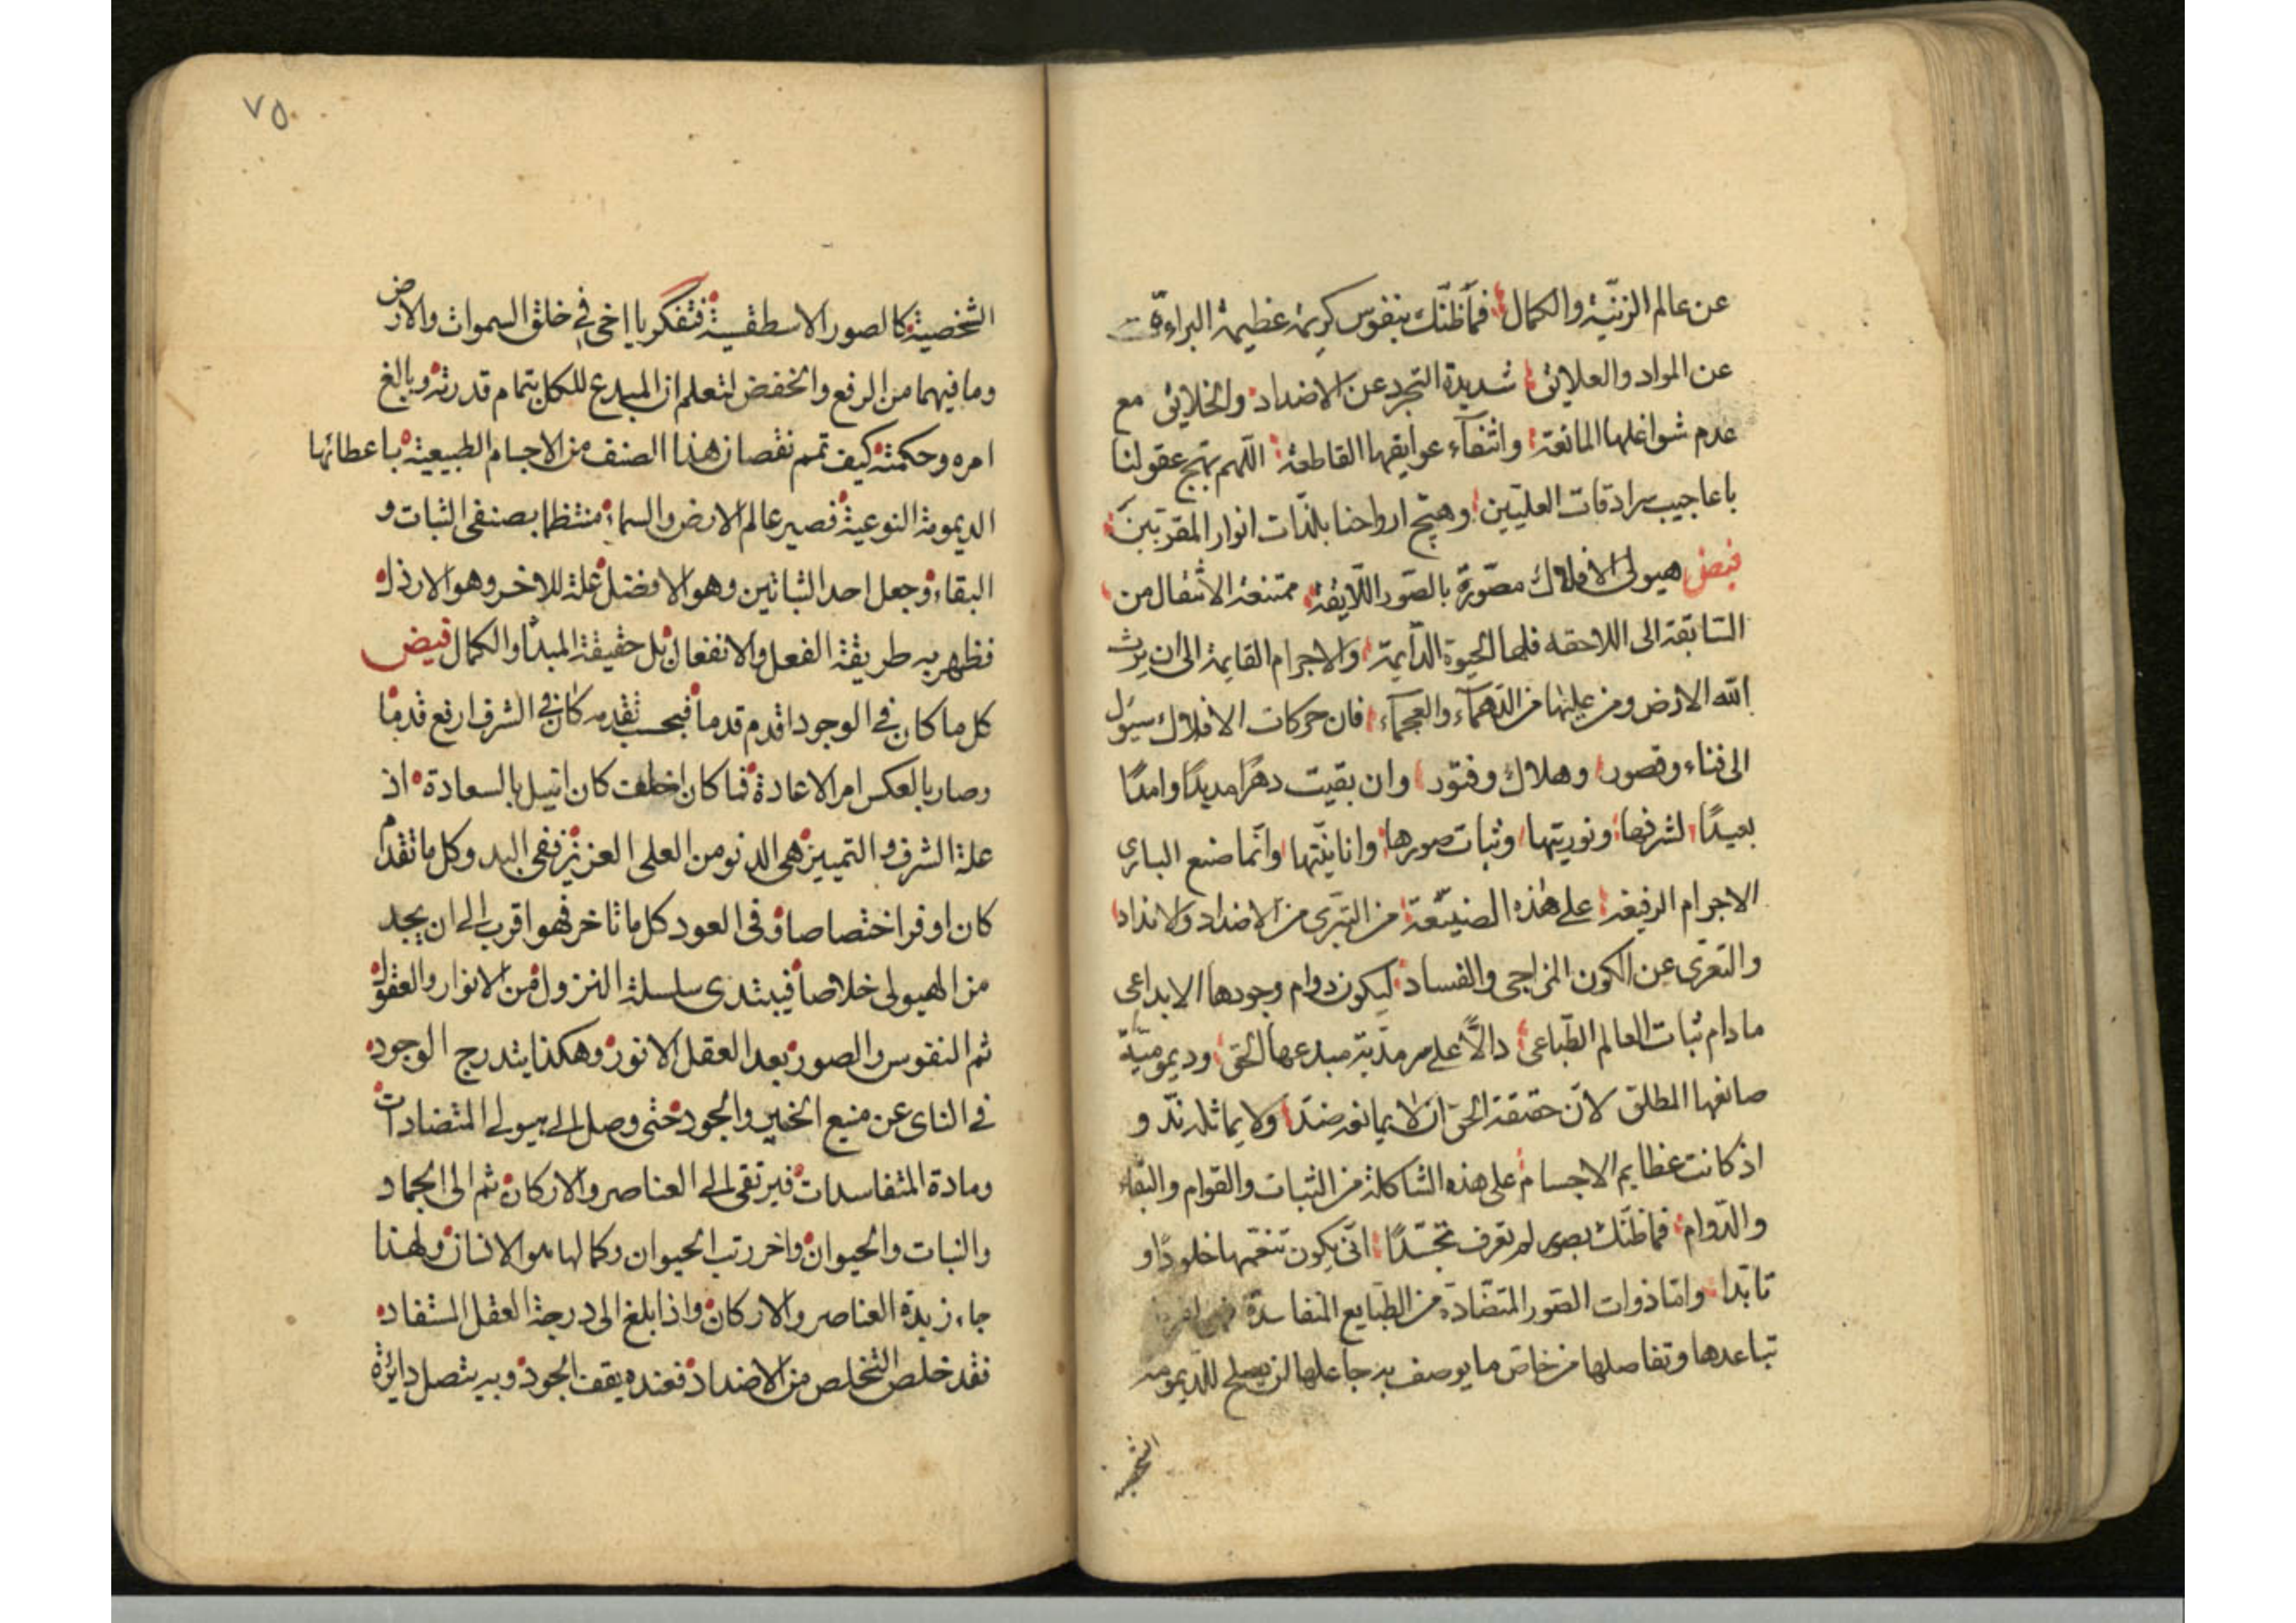 عن عالم الزينة والكمال فما ظنك بنفوس كريمة عظيمة البراءة
عن المواد والعلائق شديدة التجرد عن الاضداد والخلائق مع
عدم شواغلها المانعة وانتفاء عوايقها القاطعة اللهم بهج عقولنا
باعاجيب سرادقات العليين وهيج ارواحنا بلذات انوار المقربين
فيض هيولى الافلاك مصورة بالصور اللايقة ممتنعة الانتقال من
السابقة الى اللاحقه فلها الحيوة الدايمة والاجرام القايمة الى ان يرث
الله الارض ومن عليها من الدهماء والعجماء فان حركات الافلاك سيؤل
الى فناء وقصور وهلاك وفتور وان بقيت دهرا مديدا وامدا
بعيدا لشرفها ونوريتها وثبات صورها وانانيتها وانما صنع البارى
الاجرام الرفيعة على هذه الصنيعة من التبرى من الاضداد والانداد
والتعرى عن الكون المزاجى والفساد ليكون دوام وجودها الابداعى
ما دام ثبات العالم الطباعى دالا على سرمدية مبدعها الحق وديمومية
صانعها المطلق لان حقيقة الحق ان لا يمانعه ضد ولا يماثله ند و
اذ كانت عظايم الاجسام على هذه الشاكلة من الثبات والقوام والبقاء
والدوام فما ظنك بصور لم تعرف تجسدا انى يكون تنعمها خلودا و
تابدا واما ذوات الصور المتضادة من الطبايع المتفاسدة
تباعدها وتفاصلها من خاص ما يوصف به جاعلها لن يصلح للديمومة
الشخصية
٧٥
الشخصية كالصور الاسطقسية فتفكر يا اخى فى خلق السموات والارض
وما فيهما من الرفع والخفض لتعلم ان المبدع للكل بتمام قدرته وبالغ
امره وحكمته كيف تمم نقصان هذا الصنف من الاجسام الطبيعية باعطائها
الديمومة النوعية فصير عالم الارض والسماء منتظما بصنفى الثبات و
البقاء وجعل احد الثباتين وهو الافضل علة للاخر وهو الارذل
فظهر به طريقة الفعل والانفعال بل حقيقة المبدأ والكمال فيض
كل ما كان فى الوجود اقدم قدما فبحسب تقدمه كان فى الشرف ارفع قدما
وصار بالعكس امر الاعادة فما كان اخلف كان انيل بالسعادة اذ
علة الشرف والتمييز هى الدنو من العلى العزيز ففى البدو كل ما تقدم
كان اوفر اختصاصا وفى العود كل ما تاخر فهو اقرب الى ان يجد
من الهيولى خلاصا فيبتدى سلسلة النزول من الانوار والعقول
ثم النفوس والصور بعد العقل الانور وهكذا يتدرج الوجود
فى الناى عن منبع الخير والجود حتى وصل الى هيولى المتضادات
ومادة المتفاسدات فيرتقى الى العناصر والاركان ثم الى الجماد
والنبات والحيوان واخر رتب الحيوان وكمالها هو الانسان ولهذا
جاء زبدة العناصر والاركان واذا بلغ الى درجة العقل المستفاد
فقد خلص التخلص من الاضداد فعنده يقف الجود وبه يتصل دائرة